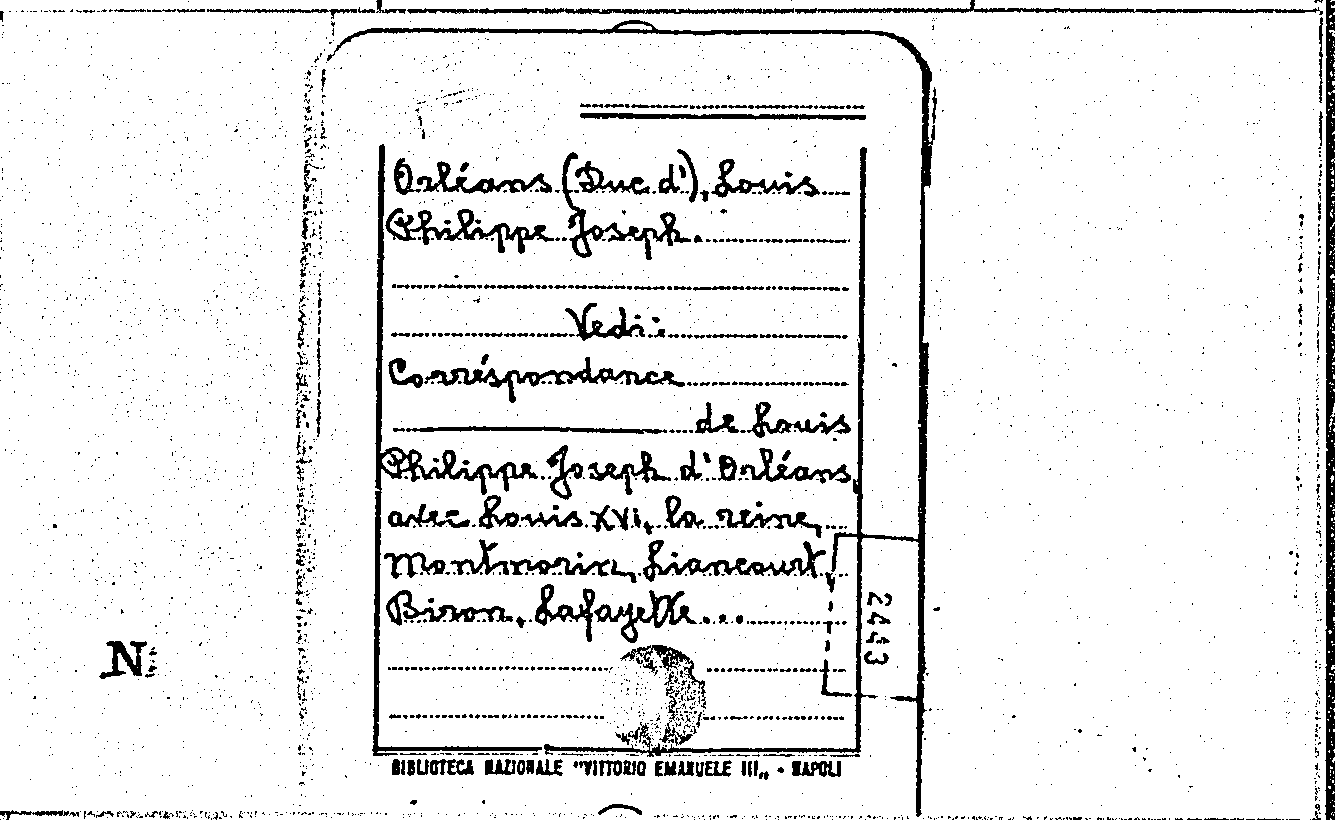 Orléans (Duc d'), Louis
Philippe Joseph.
Vedi:
Corréspondance
de Louis
Philippe Joseph d'Orléans,
avec Louis XVI, la reine,
Montmorin, Liancourt,
Biron, Lafayette...
2443
N
BIBLIOTECA NAZIONALE "VITTORIO EMANUELE III„ - NAPOLI